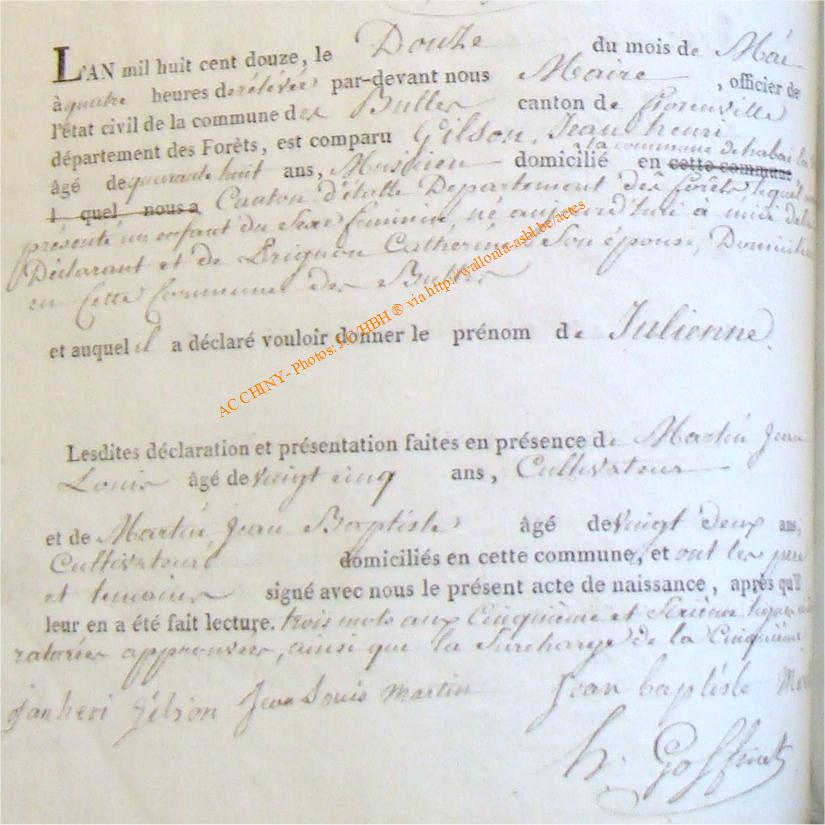 L'AN mil huit cent douze, le Douze du mois de Mai
à quatre heures de rélévée par-devant nous Maire, officier de
l'état civil de la commune des Bulles canton de florenville
département des Forêts, est comparu Gilson, Jean henri
âgé de quarante huit ans, Musicien domicilié en la commune de habai la cette commune
l quel nous a Canton d'étalle Département des forêts lequel
présenté un enfant du Sexe feminin né aujourd'hui à midi de lui
Déclarant et de Prignon Cathérine Son épouse, Domicilié
en Cette Commune des Bulles
et auquel il a déclaré vouloir donner le prénom de Julienne.
AC CHINY - Photos: JC/HBH ® via http://wallonia-asbl.be/actes
Lesdites déclaration et présentation faites en présence de Martin Jean
Louis âgé de vingt cinq ans, Cultivateur
et de Martin, Jean Baptiste âgé de vingt deux ans,
Cultivateurs domiciliés en cette commune, et ont les pere
et temoins signé avec nous le présent acte de naissance, après qu'il
leur en a été fait lecture. trois mots aux Cinquième et Sixième lignes
raturées approuvées, ainsi que la Surcharge de la Cinquième
janheri gilson Jean Louis martin Jean baptiste
h. Goffinet